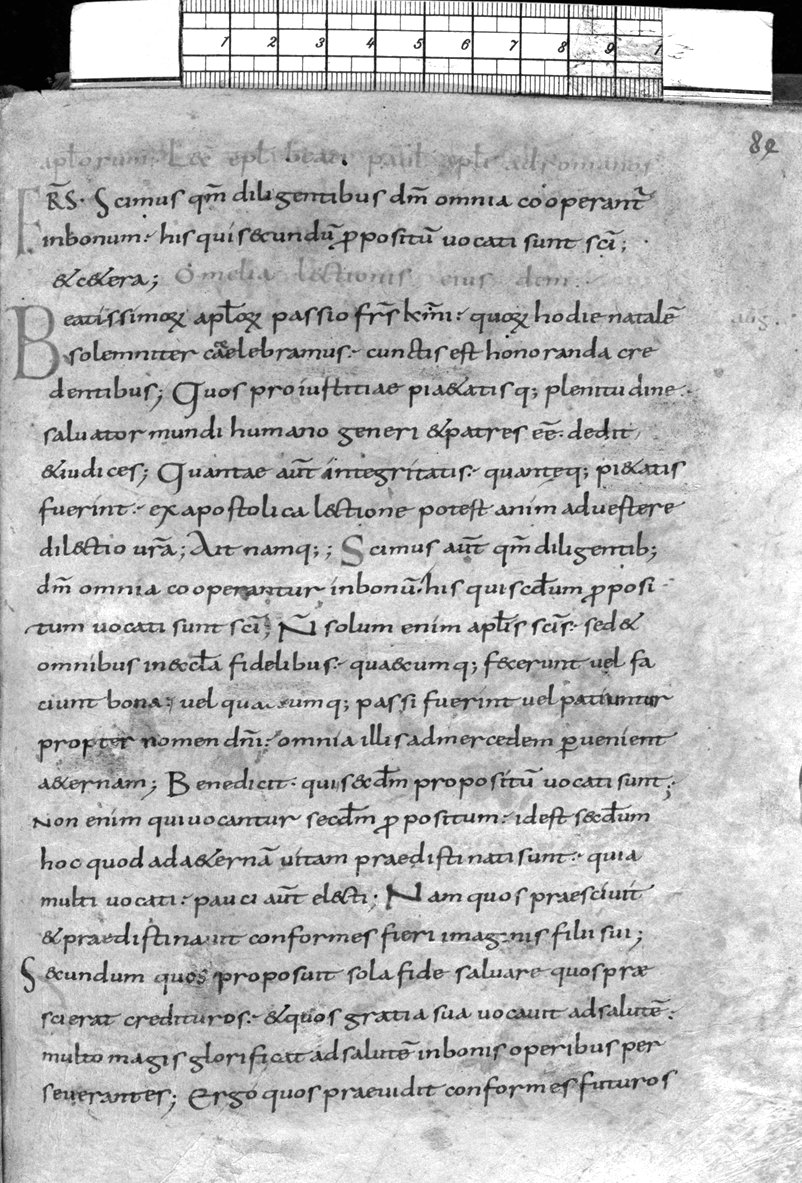 1 2 3 4 5 6 7 8 9 1
89
apl̄orum: Lec̄ epl̄ beati pauli apl̄i ad romanos
FR̄S· Scimus qm̄ diligentibus dm̄ omnia cooperant᷑
inbonum: his qui secundū ꝓpositū uocati sunt sc̄i;
&c&era; Omelia lectionis eius dem
Beatissimoꝝ apl̄oꝝ passio fr̄s km̄i: quoꝝ hodie natalē
aug.
solemniter caelebramus: cunctis est honoranda cre
dentibus; Quos pro iustitiae pia&atisq; plenitudine
saluator mundi humano generi & patres eē dedit
& iudices; Quantae aut̄ integritatis: quanteq; pi&atis
fuerint: ex apostolica lectione potest animaduestere
dilectio ur̄a; Ait namq;; Scimus aut̄ qm̄ diligentib;
dm̄ omnia cooperantur inbonū: his qui scd̄um ꝓposi
tum uocati sunt sc̄i; N̄ solum enim apl̄is sc̄is: sed &
omnibus in eccl̄a fidelibus: quaecumq; fecerunt uel fa
ciunt bona; uel quaecumq; passi fuerint uel patiuntur
propter nomen dn̄i: omnia illis ad mercedem ꝑuenient
a&ernam; Bene dicit· qui secd̄m propositū uocati sunt;
Non enim qui uocantur secd̄m ꝓpositum: id est secd̄um
hoc quod ad a&ernā uitam praedistinati sunt: quia
multi uocati: pauci aut̄ electi; Nam quos praesciuit
& praedistinauit conformes fieri imaginis filii sui;
Secundum quos proposuit sola fide saluare quos præ
scierat credituros: & quos gratia sua uocauit ad salutē:
multo magis glorificat ad salutē in bonis operibus per
seuerantes; Ergo quos praeuidit conformes futuros